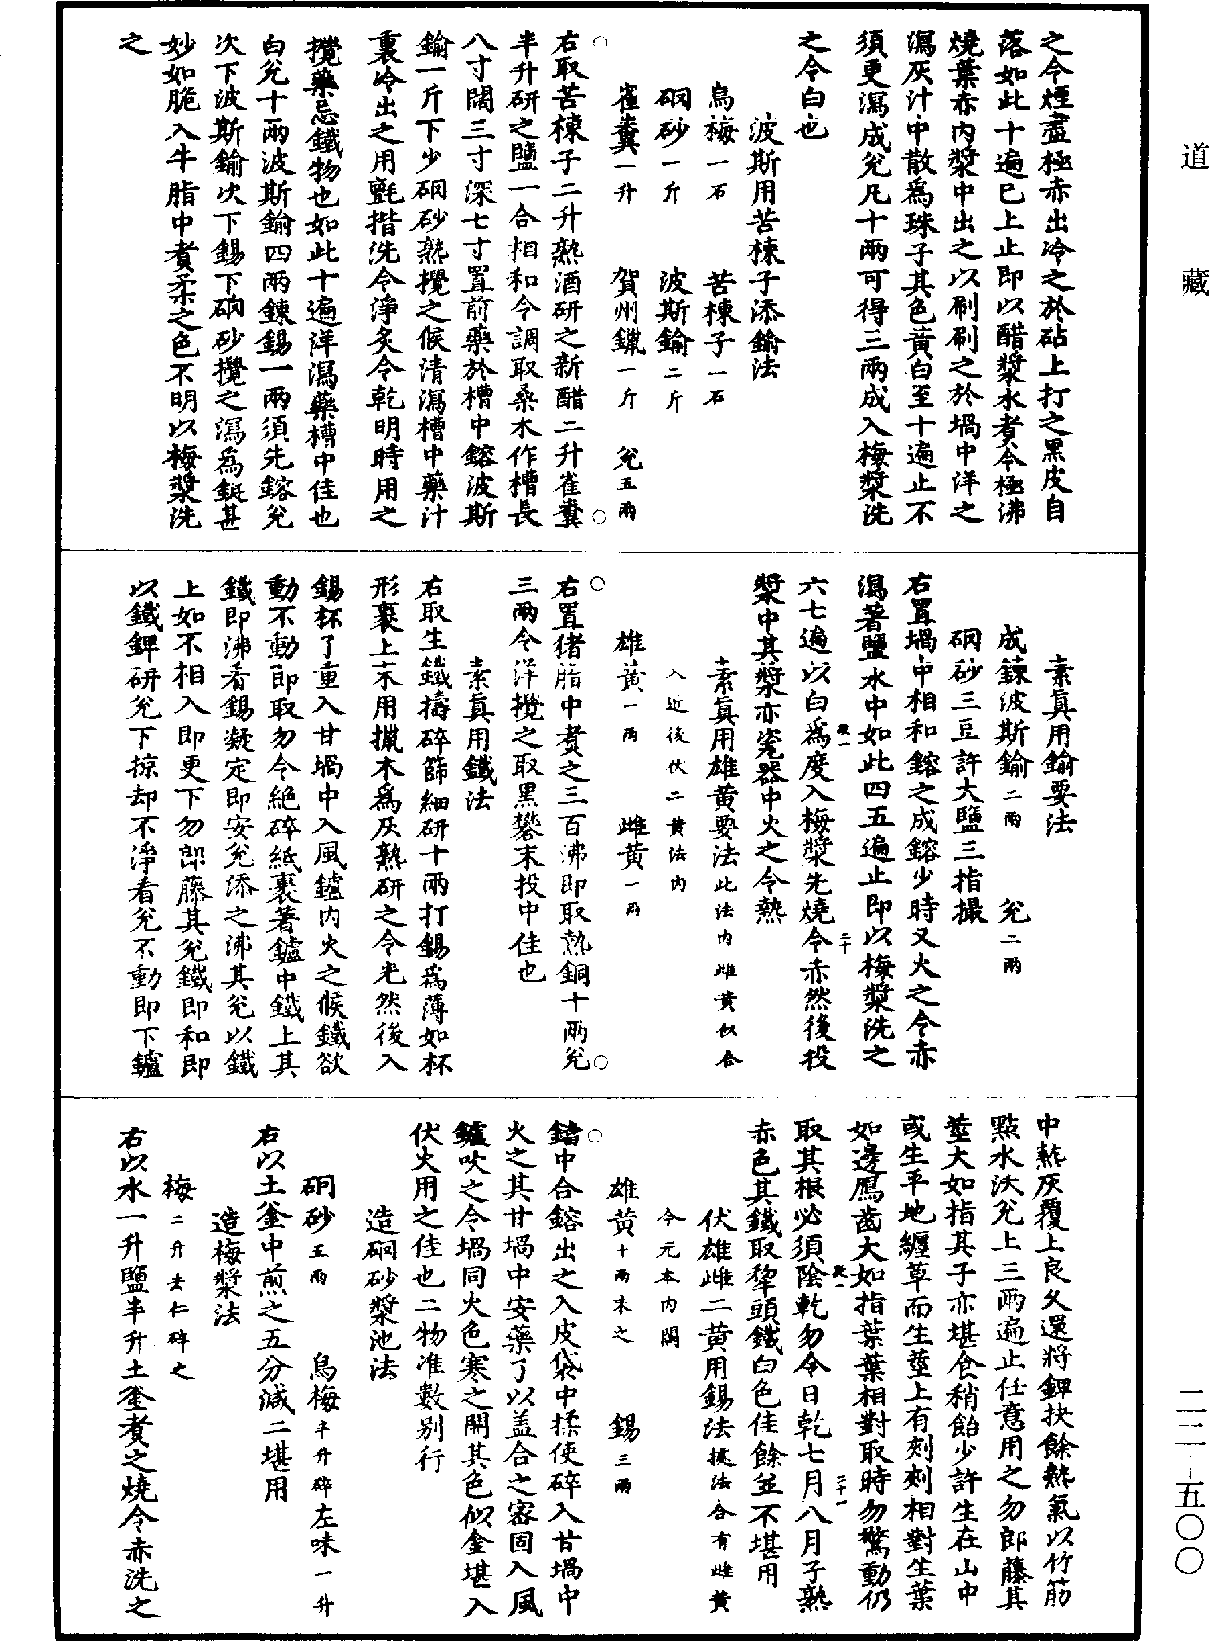 道藏
二二-五〇〇
之令煙盡極赤出冷之於砧上打之黑皮自
落如此十遍已上止即以醋漿水煮令極沸
燒葉赤內漿中出之以刷刷之於堝中洋之
瀉灰汁中散為珠子其色黃白至十遍止不
須更瀉成兊凡十兩可得三兩成入梅漿洗
之令白也
波斯用苦楝子添鍮法
烏梅一石 苦楝子一石
硇砂一斤 波斯鍮二斤
雀糞一升 賀州鑞一斤 兊五兩
右取苦楝子二升熟酒研之新醋二升雀糞
半升研之鹽一合相和令調取桑木作槽長
八寸闊三寸深七寸置前藥於槽中鎔波斯
鍮一斤下少硇砂熟攪之候清瀉槽中藥汁
裏冷出之用氈揩洗令淨炙令乾明時用之
攪藥忌鐵物也如此十遍洋瀉藥槽中佳也
白兊十兩波斯鍮四兩鍊錫一兩須先鎔兊
次下波斯鍮次下錫下硇砂攪之瀉為鋌甚
妙如脆入牛脂中煑柔之色不明以梅漿洗
之
素真用鍮要法
成鍊波斯鍮二兩 兊二兩
硇砂三豆許大鹽三指撮
右置堝中相和鎔之成鎔少時又火之令赤
瀉著鹽水中如此四五遍止即以梅漿洗之
六七遍以白為度入梅漿先燒令赤然後投
漿中其漿亦瓷器中火之令熱
素真用雄黃要法此法內雌黃似合
入近後伏二黃法內
雄黃一兩 雌黃一兩
右置猪脂中煑之三百沸即取熟銅十兩兊
三兩令洋攪之取黑礬末投中佳也
素真用鐵法
右取生鐵擣碎篩細研十兩打錫為薄如杯
形裹上末用㯕木為灰熟研之令光然後入
錫杯了重入甘堝中入風鑪內火之候鐵欲
動不動即取勿令絕碎紙裹著鑪中鐵上其
鐵即沸看錫凝定即安兊添之沸其兊以鐵
上如不相入即更下勿郎藤其兊鐵即和即
以鐵錍研兊下掠却不淨看兊不動即下鑪
中熱灰覆上良久還將錍抉餘熱氣以竹筋
點水沃兊上三兩遍止任意用之勿郎藤其
莖大如指其子亦堪食稍飴少許生在山中
或生平地纏草而生莖上有刻刻相對生葉
如邊鴈齒大如指葉葉相對取時勿驚動仍
取其根必須陰乾勿令日乾七月八月子熟
赤色其鐵取犂頭鐵白色佳餘並不堪用
伏雄雌二黃用錫法據法合有雌黃
今元本內闕
雄黃十兩末之 錫三兩
鐺中合鎔出之入皮袋中揉使碎入甘堝中
火之其甘堝中安藥了以盖合之密固入風
鑪吹之令堝同火色寒之開其色似金堪入
伏火用之佳也二物准數別行
造硇砂漿池法
硇砂五兩 烏梅半升碎左味一升
右以土釜中煎之五分減二堪用
造梅漿法
梅二升去仁碎之
右以水一升鹽半升土釜煑之燒令赤洗之